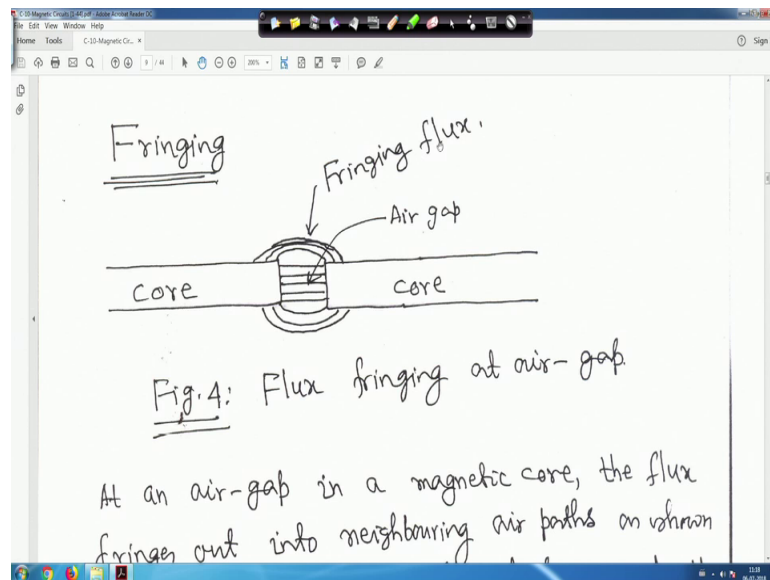 C-10-Magnetic Circuits [1-44].pdf - Adobe Acrobat Reader DC
File Edit View Window Help
Home Tools C-10-Magnetic Cir... × Sign
9 / 44 200%
Fringing
Fringing flux.
Air gap
core core
Fig. 4: Flux fringing at air-gap.
At an air-gap in a magnetic core, the flux
fringes out into neighbouring air paths as shown
11:18